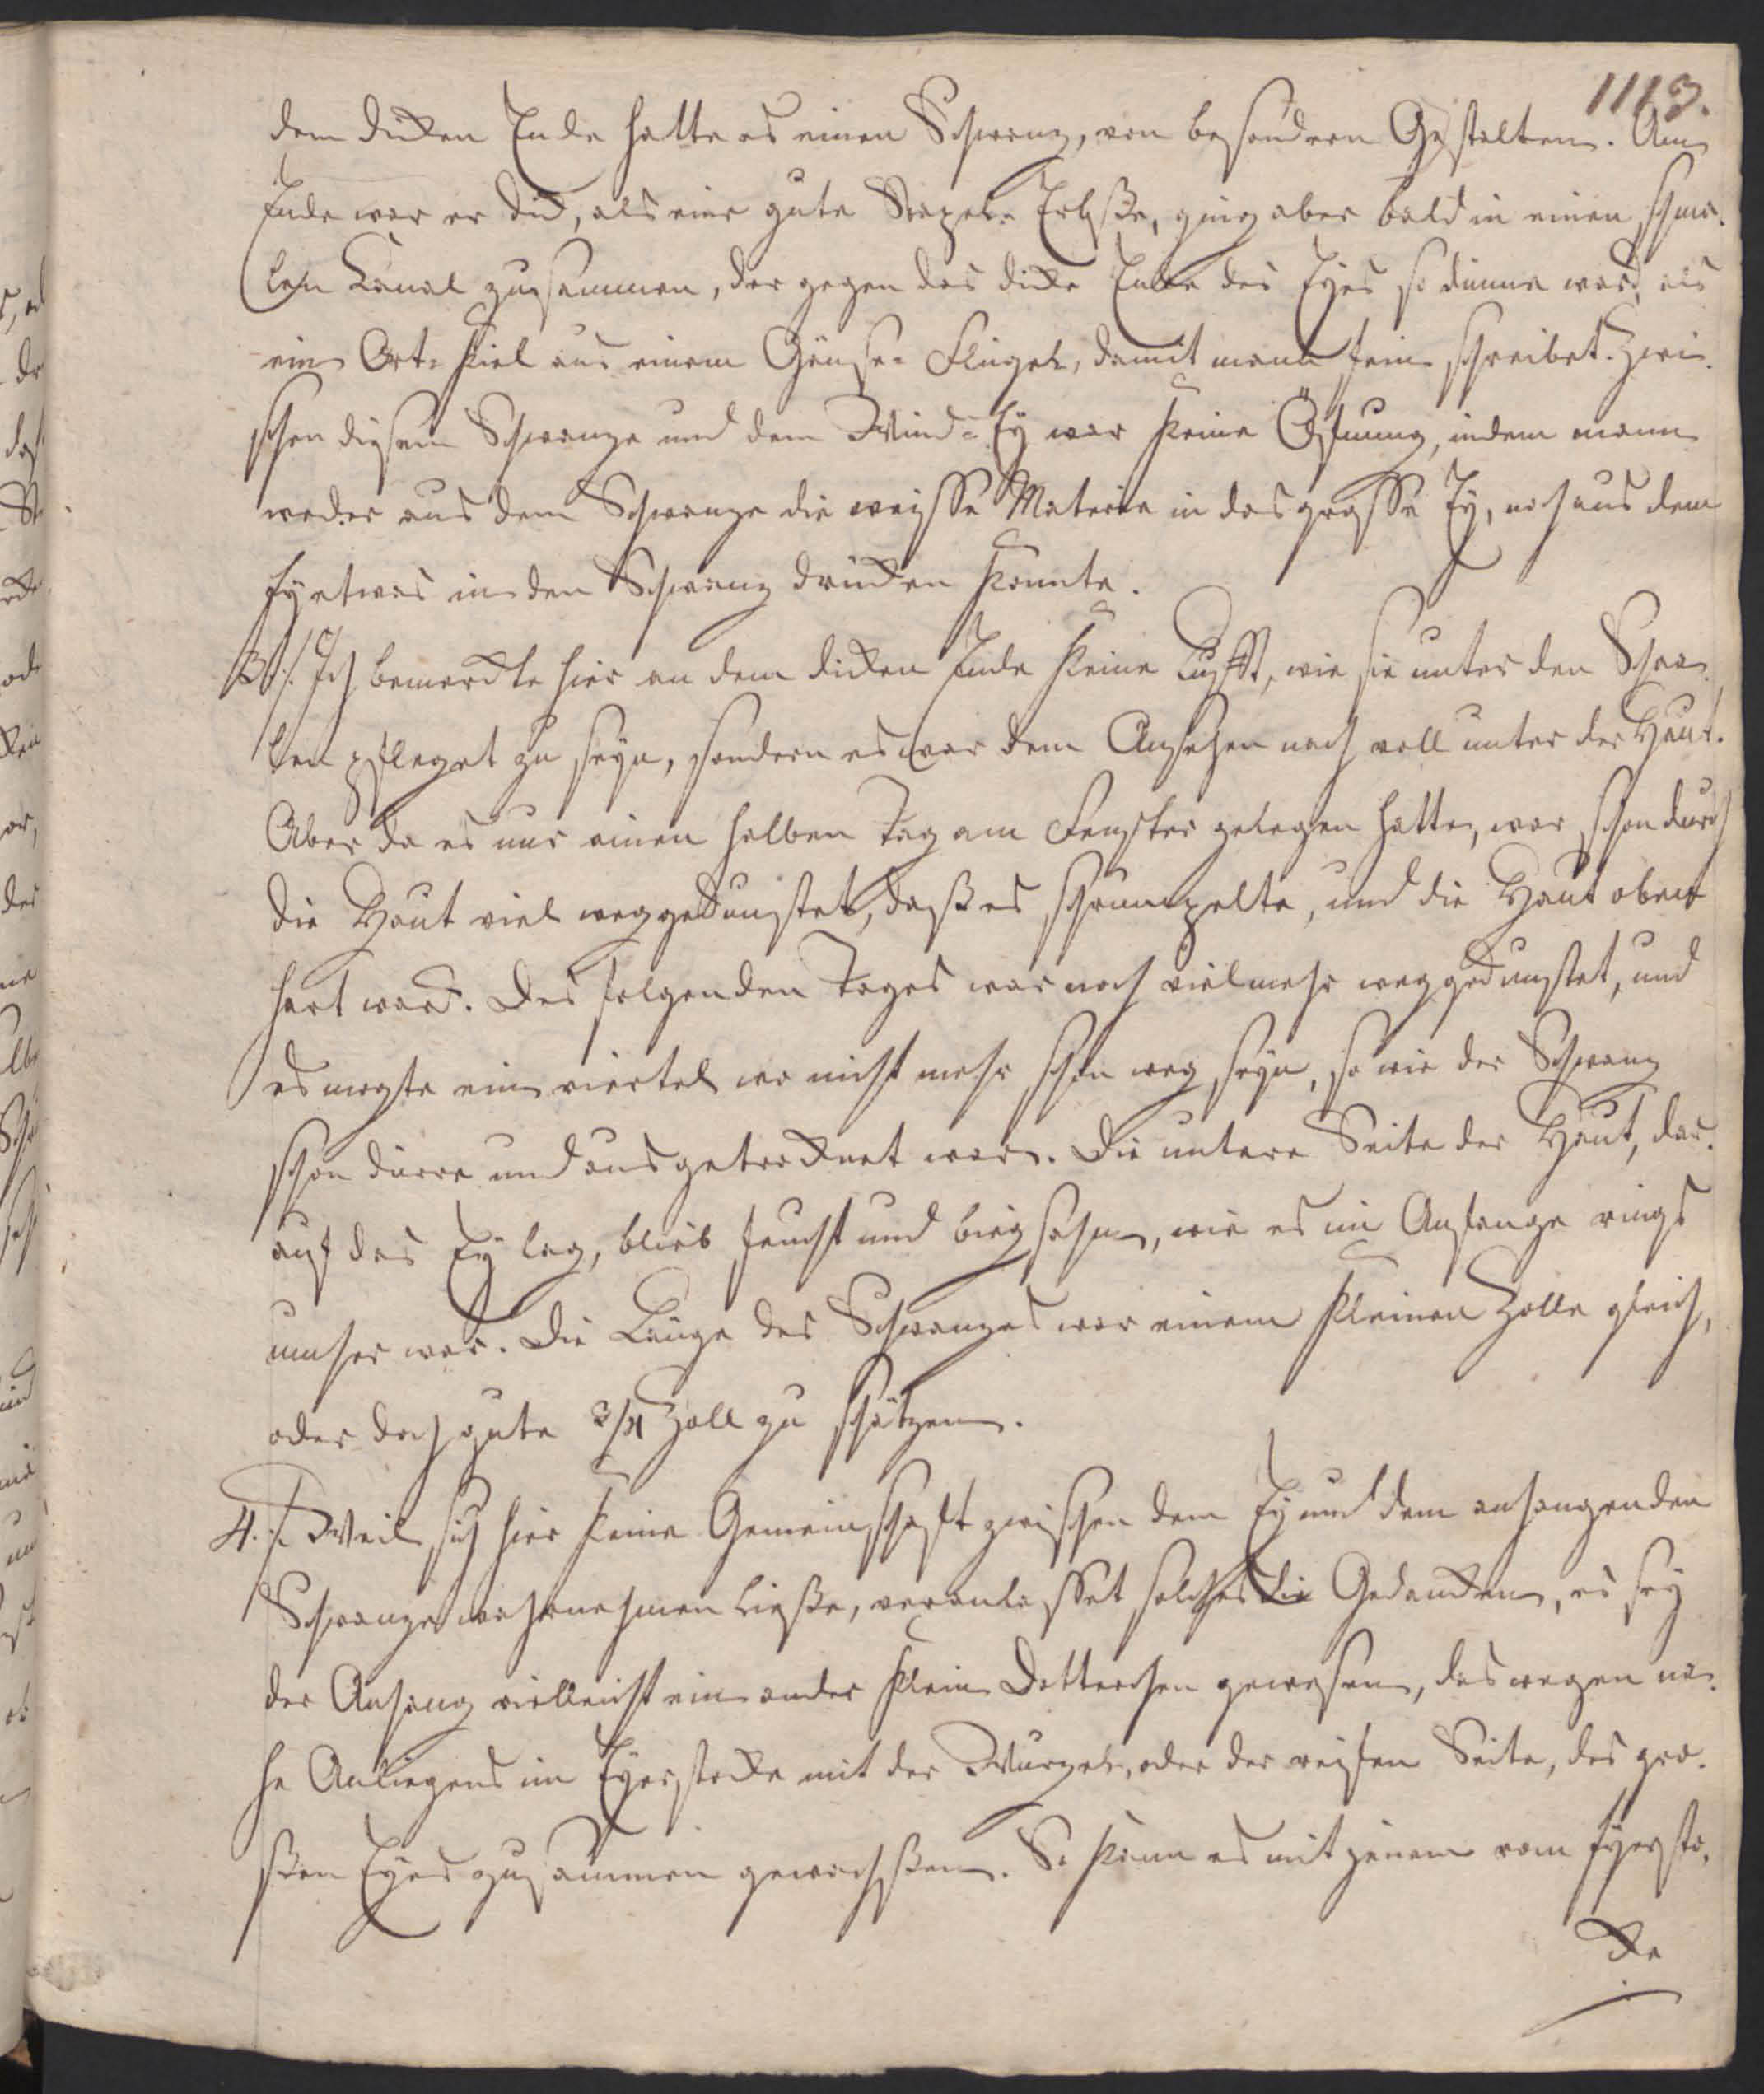 1113.
dem dicken Ende hatte es einen Schwanz, von besondern Gestalten. Am
Ende war er dick, als eine gute Erbße, ging aber bald in einen schma-
len Canal zusammen, der gegen das dicke Ende des Eyes so dünne ward, als
ein Ort-Kiel aus einem Gänse-Flügel, damit mann fein schreibet. Zwi-
schen diesem Schwanze und dem Wind-Ey war keine Öfnung, indem mann
weder aus dem Schwanze die weisse Materie in das grosse Ey, noch aus dem
Ey etwas in den Schwanz drücken konnte.
3./. Ich bemerckte hier an dem dicken Ende keine Lufft, wie sie unter den Schaa-
len pfleget zu seyn, sondern es war dem Ansehen nach voll unter der Haut.
Aber da es nur einen halben Tag am Fenster gelegen hatte, war schon durch
die Haut viel weggedunstet, daß es schrumpelte, und die Haut oben
hart ward. Des folgenden Tages war noch vielmehr weggedunstet, und
es mogte ein viertel wo nicht mehr schon weg seyn, so wie der Schwanz
schon dürre und ausgetrocknet war. Die untere Seite der Haut, dar-
auf das Ey lag, blieb feucht und biegsahm, wie es im Anfange rings
umher war. Die Länge des Schwanzes war einem kleinen Zolle gleich,
oder doch gute 3/4 Zoll zu schätzen.
4./. Weil sich hier keine Gemeinschaft zwischen dem Ey und dem anhangenden
Schwanze wahrnehmen ließe, veranlasset solches die Gedancken, es sey
der Anhang vielleicht ein ander klein Dotterchen gewesen, des wegen na-
he Anliegens im Eyerstocke mit der Wurzel, oder der reifen Seite, des gro-
ßen Eyes zusammen gewachßen. So kann es mit jenem vom Eyersto-
cke